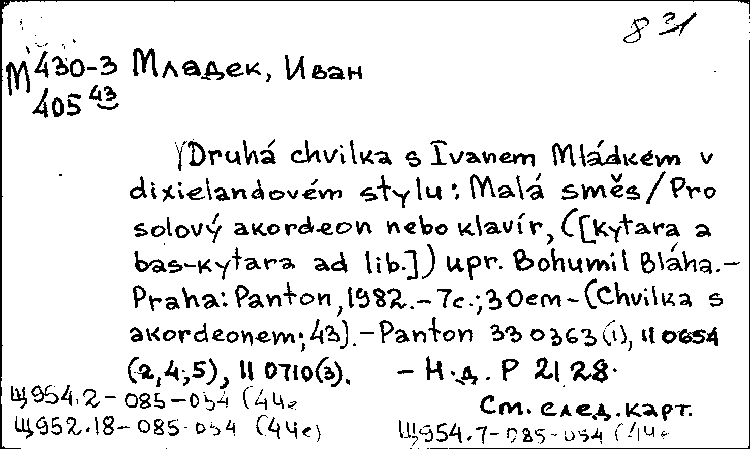 8 31
М 430-3 Младек, Иван
405 43
Druhá chvilka s Ivanem Mládkem v
dixielandovém stylu: Malá směs/Pro
solový akordeon nebo klavír, ([kytara a
bas-kytara ad lib.]) upr. Bohumil Bláha.-
Praha: Panton, 1982.- 7с.; 30cm - (Chvilka s
akordeonem; 43).- Panton 330363(1), 110654
(2,4,5), 110710(3). - Н.д. P 2128.
Щ954.2-085-054 (4Че
См. след. карт.
Щ952.18-085-054 (4Че)
Щ954.7-085-054 (4Че